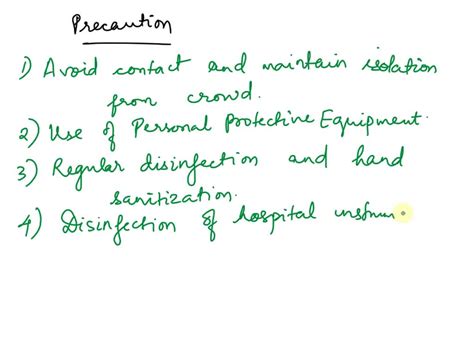 Precaution
1) Avoid contact and maintain isolation
from crowd.
2) Use of Personal Protective Equipment.
3) Regular disinfection and hand
sanitization.
4) Disinfection of hospital